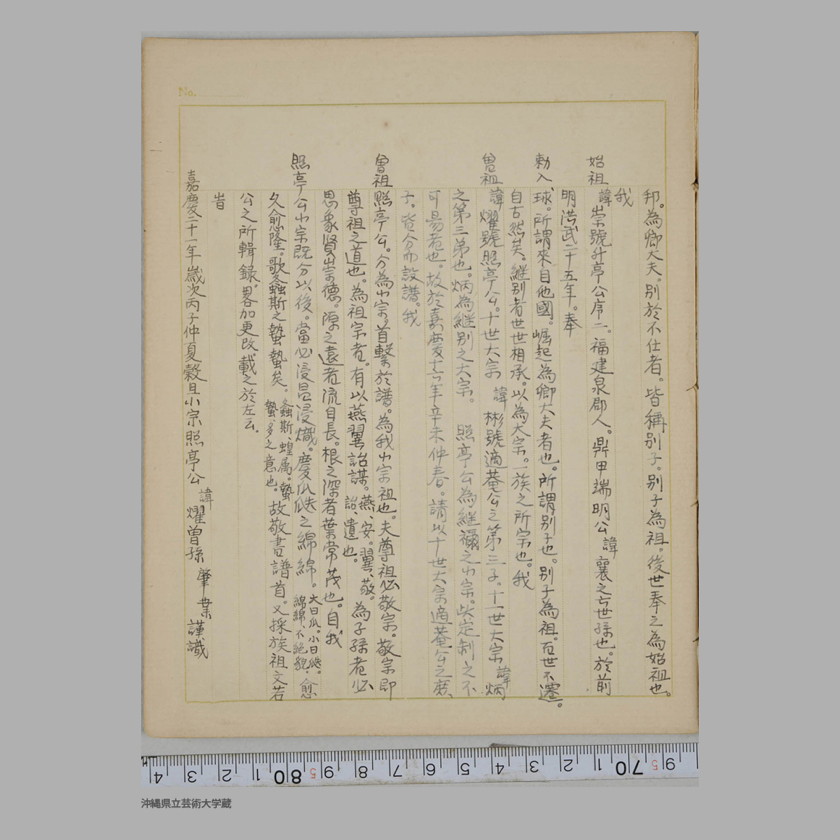 邦。為鄉大夫。別於不仕者。皆稱別子。別子為祖。後世奉之為始祖也。
我
始祖 諱崇號升亭公席二。福建泉郡人。鼎甲端明公 諱襄之六世孫也。於前
明洪武二十五年。奉
勅入球。所謂來自他國。崛起為鄉大夫者也。所謂別子也。別子為祖。百世不遷。
自古然矣。継別者世世相承。以為大宗。一族之所宗也。我
曾祖 諱燿號照亭公。十世大宗 諱彬號適菴公之第三子。十一世大宗 諱炳
之第三弟也。炳為継別之大宗。 照亭公為継禰之小宗。此定制之不
可易者也。故於嘉慶十六年辛未仲春。請以十世大宗適菴公之庶
子。皆分而設譜。我
曾祖照亭公。分為小宗。首繫於譜。為我小宗祖也。夫尊祖必敬宗。敬宗即
尊祖之道也。為祖宗者。有以燕翼詒謀。燕、安。翼、敬。詒、遺也。為子孫者必
思象賢崇德。源之遠者流自長。根之深者葉常茂也。自我
照亭公小宗既分以後。當必浸昌浸熾。慶瓜瓞之綿綿。大曰瓜。小曰瓞。綿綿、不絕貌。愈
久愈隆。歌螽斯之蟄蟄矣。螽斯、蝗属。蟄蟄、多之意也。故敬書譜首。又採族祖文若
公之所輯錄。畧加更改。載之於左云。
旹
嘉慶二十一年歲次丙子仲夏穀旦小宗照亭公 諱燿曾孫 肇業 謹識
No.
9 70 1 2 3 4 5 6 7 8 9 80 1 2 3 4
沖縄県立芸術大学蔵